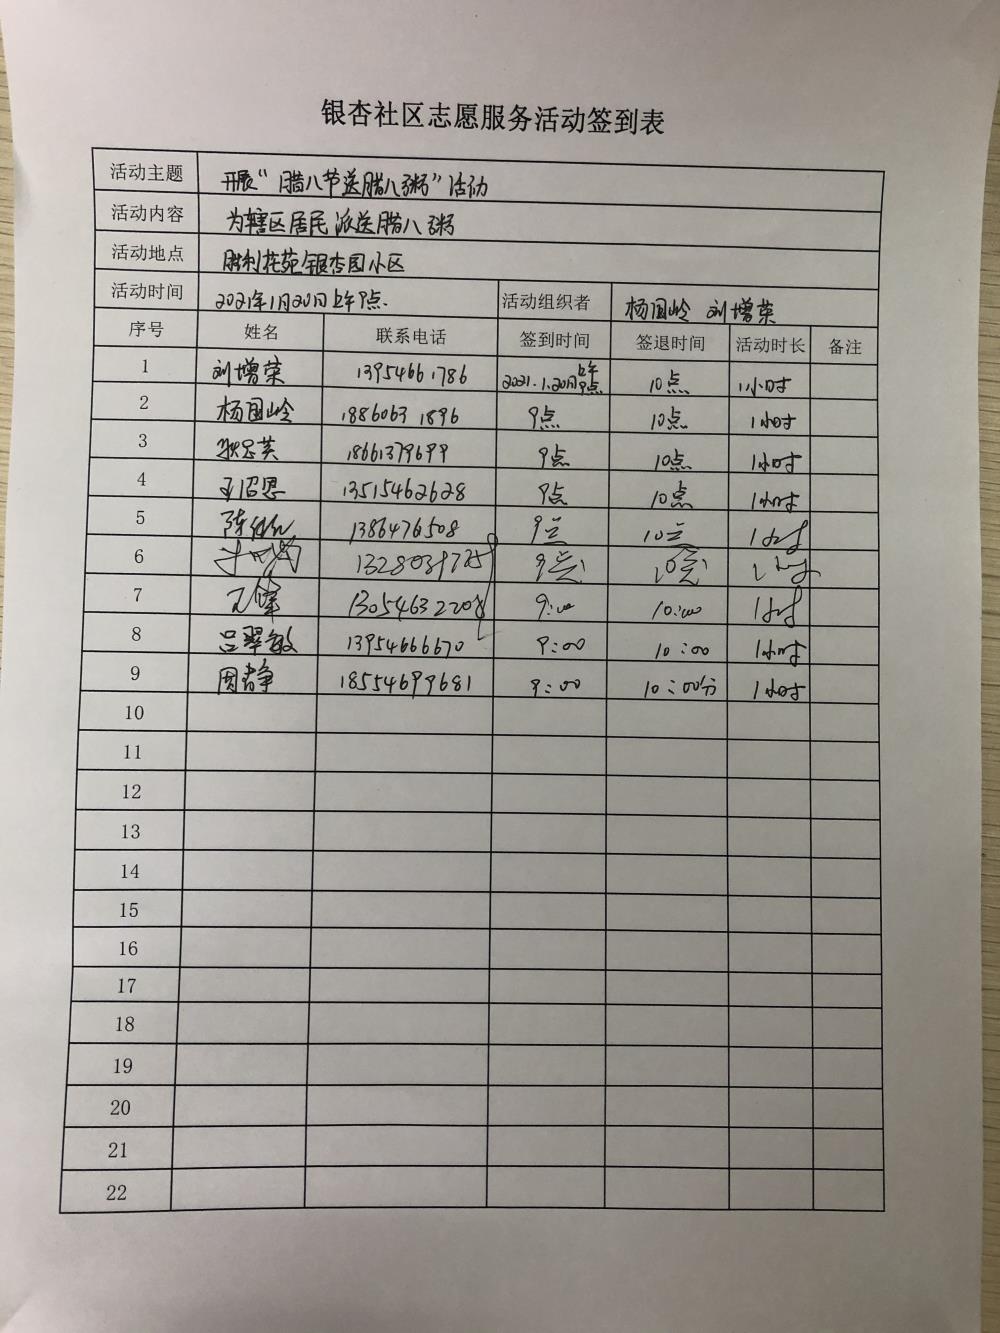 银杏社区志愿服务活动签到表
活动主题 开展“腊八节送腊八粥”活动
活动内容 为辖区居民派送腊八粥
活动地点 胜利花苑银杏园小区
活动时间 2021年1月20日上午9点. 活动组织者 杨国岭 刘增荣
序号 姓名 联系电话 签到时间 签退时间 活动时长 备注
1 刘增荣 13954661786 2021.1.20日上午9点 10点 1小时
2 杨国岭 18860631896 9点 10点 1小时
3 18661379699 9点 10点 1小时
4 王昭恩 13515462628 9点 10点 1小时
5 1386476508 9点 10点 1小时
6 9点 10点
7 13054632208 9:00 10:00 1小时
8 吕翠敏 13954666670 9:00 10:00 1小时
9 周静 18554699681 9:00 10:00分 1小时
10
11
12
13
14
15
16
17
18
19
20
21
22